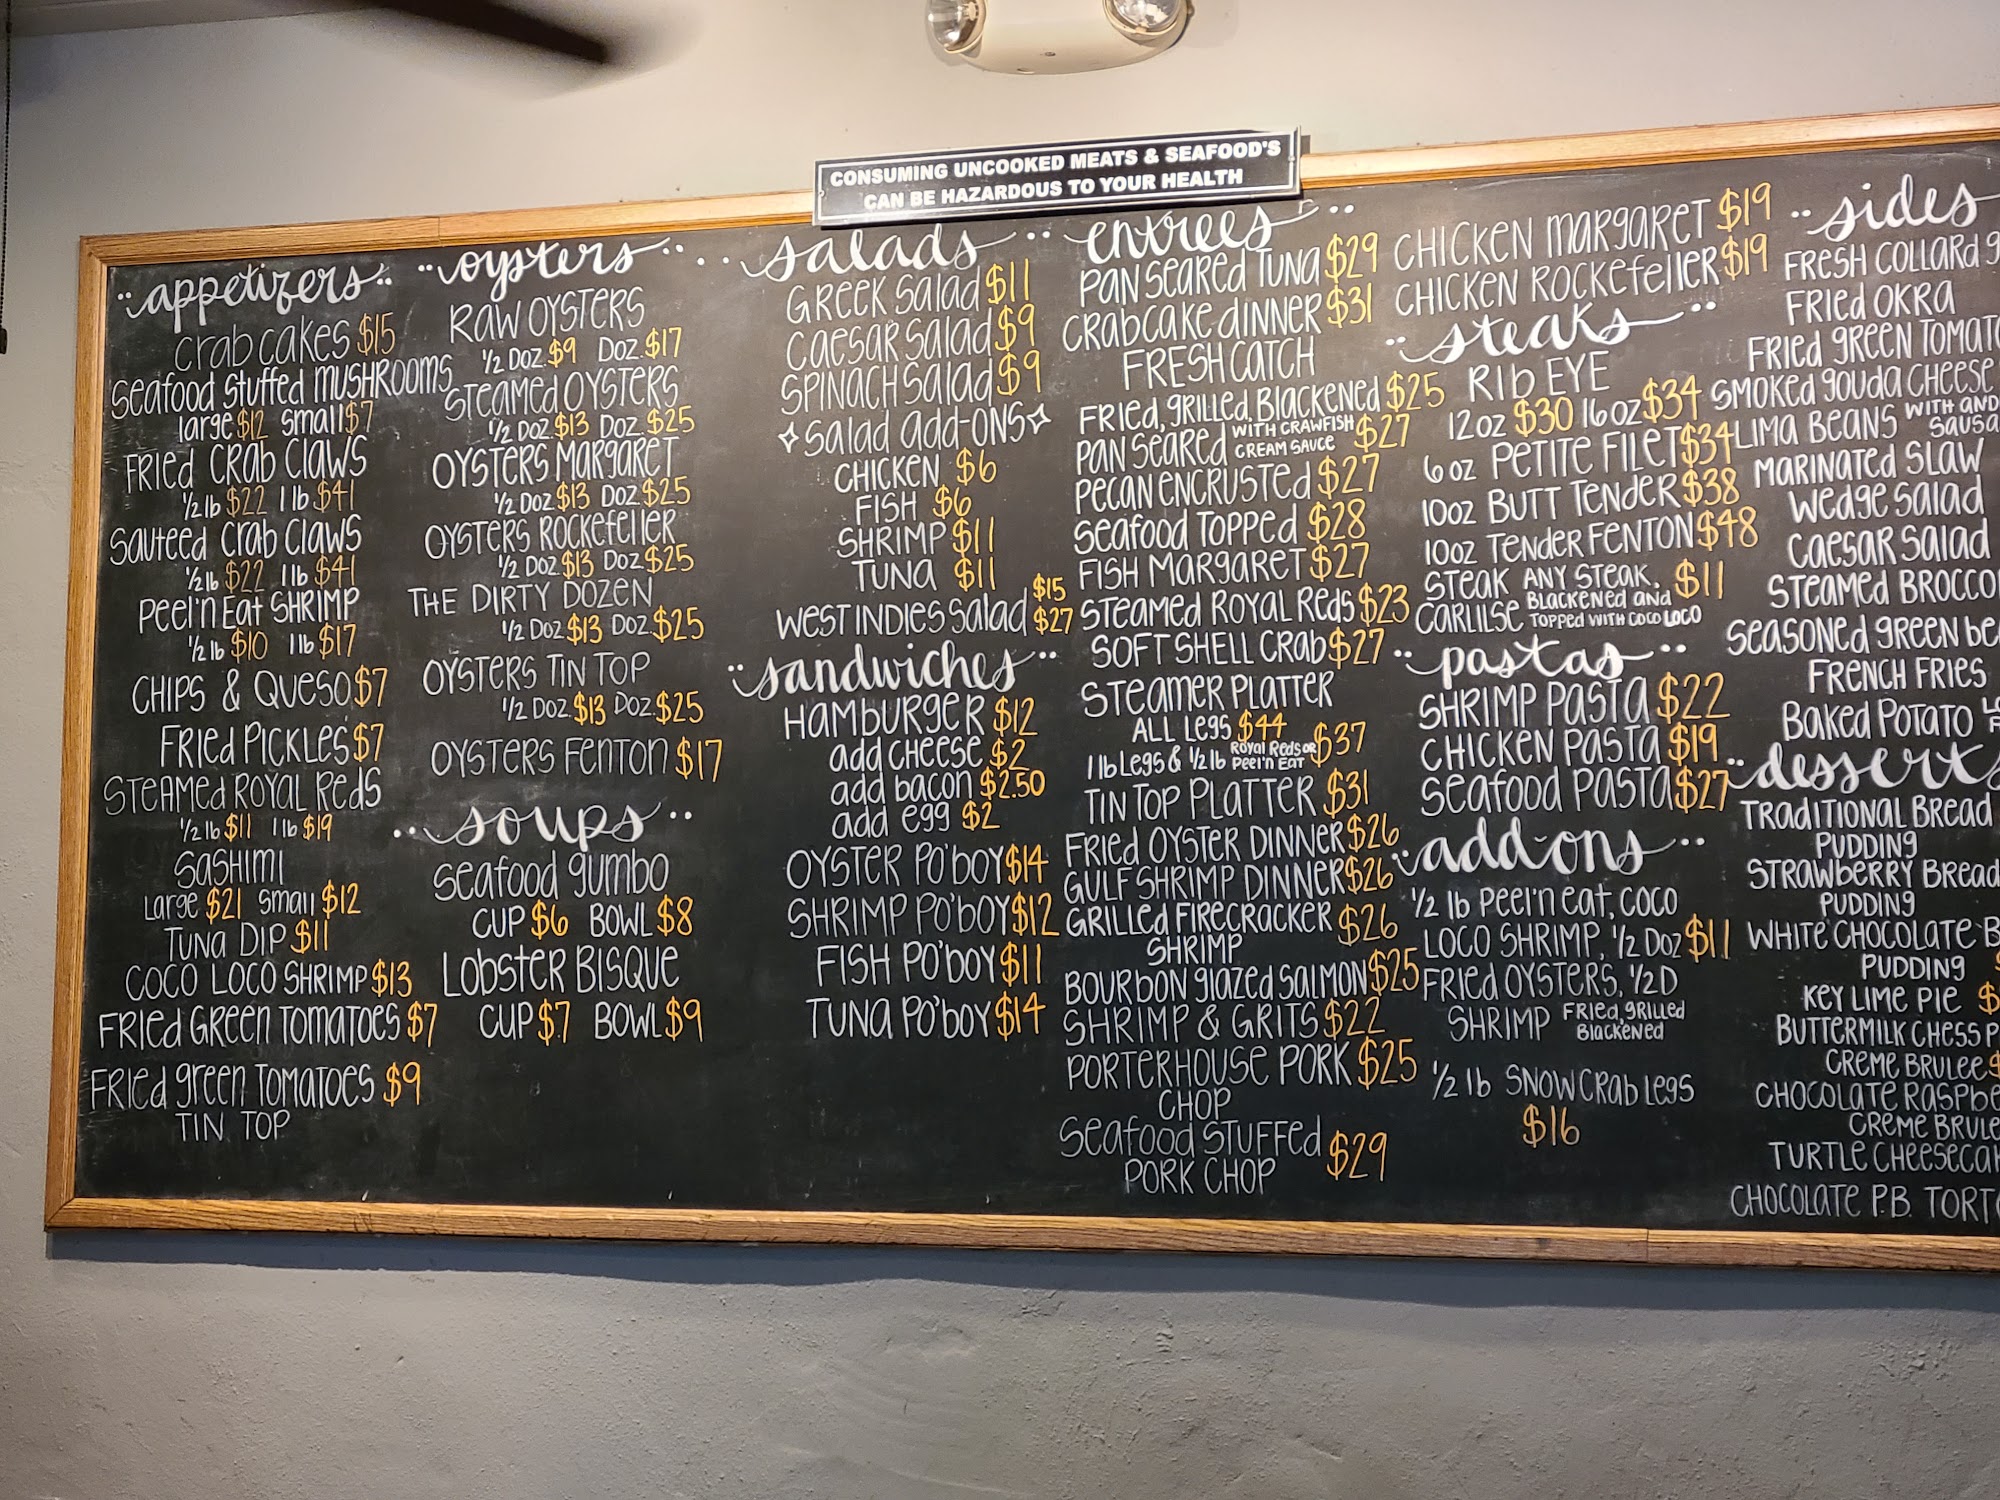 CONSUMING UNCOOKED MEATS & SEAFOOD'S
CAN BE HAZARDOUS TO YOUR HEALTH
appetizers
Crab Cakes $15
Seafood Stuffed MUSHROOMS
large $12 Small $7
FRIED CRAB ClAWS
1/2 lb $22 1 lb $41
SAUTEED CRAB ClAWS
1/2 lb $22 1 lb $41
Peel'n Eat SHRIMP
1/2 lb $10 1 lb $17
CHIPS & QUESO $7
FRIED PICKLES $7
STEAMED ROYAL REDS
1/2 lb $11 1 lb $19
SASHIMI
Large $21 Small $12
TUNA DIP $11
COCO LOCO SHRIMP $13
FRIED GREEN TOMATOES $7
FRIED green TOMATOES $9
TIN TOP
oysters
RAW OYSTERS
1/2 DOZ. $9 DOZ. $17
STEAMED OYSTERS
1/2 DOZ. $13 DOZ. $25
OYSTERS MARGARET
1/2 DOZ. $13 DOZ. $25
OYSTERS ROCKEFELLER
1/2 DOZ. $13 DOZ. $25
THE DIRTY DOZEN
1/2 DOZ. $13 DOZ. $25
OYSTERS TIN TOP
1/2 DOZ. $13 DOZ. $25
OYSTERS FENTON $17
soups
SEAFOOD GUMBO
CUP $6 BOWL $8
LOBSTER BISQUE
CUP $7 BOWL $9
salads
GREEK SALAD $11
CAESAR SALAD $9
SPINACH SALAD $9
SALAD ADD-ONS
CHICKEN $6
FISH $6
SHRIMP $11
TUNA $11
WEST INDIES SALAD $15 $27
sandwiches
HAMBURGER $12
add CHEESE $2
add bacon $2.50
add egg $2
OYSTER PO'BOY $14
SHRIMP PO'BOY $12
FISH PO'BOY $11
TUNA PO'BOY $14
entrees
PAN SEARED TUNA $29
CRABCAKE DINNER $31
FRESH CATCH
FRIED, GRILLED, BLACKENED $25
PAN SEARED WITH CRAWFISH CREAM SAUCE $27
PECAN ENCRUSTED $27
SEAFOOD TOPPED $28
FISH MARGARET $27
STEAMED ROYAL REDS $23
SOFT SHELL CRAB $27
STEAMER PLATTER
ALL LEGS $44
1 lb LEGS & 1/2 lb ROYAL REDS OR PEEL'N EAT $37
TIN TOP PLATTER $31
FRIED OYSTER DINNER $26
GULF SHRIMP DINNER $26
GRILLED FIRECRACKER $26
SHRIMP
BOURBON GLAZED SALMON $25
SHRIMP & GRITS $22
PORTERHOUSE PORK $25
CHOP
SEAFOOD STUFFED $29
PORK CHOP
CHICKEN MARGARET $19
CHICKEN ROCKEFELLER $19
steaks
RIB EYE
12 OZ $30 16 OZ $34
6 OZ PETITE FILET $34
10OZ BUTT TENDER $38
10OZ TENDER FENTON $48
STEAK CARLILSE ANY STEAK, BLACKENED AND TOPPED WITH COCO LOCO $11
pastas
SHRIMP PASTA $22
CHICKEN PASTA $19
SEAFOOD PASTA $27
add-ons
1/2 lb Peel'n eat, COCO
LOCO SHRIMP, 1/2 DOZ $11
FRIED OYSTERS, 1/2 D
SHRIMP FRIED, GRILLED BLACKENED
1/2 lb SNOW CRAB LEGS
$16
sides
FRESH COLLARD g
FRIED OKRA
FRIED GREEN TOMATO
SMOKED GOUDA CHEESE
LIMA BEANS WITH AND SAUSA
MARINATED SLAW
WEDGE SALAD
CAESAR SALAD
STEAMED BROCCO
SEASONED GREEN BE
FRENCH FRIES
BAKED POTATO
desserts
TRADITIONAL BREAD
PUDDING
STRAWBERRY BREAD
PUDDING
WHITE CHOCOLATE B
PUDDING
KEY LIME PIE $
BUTTERMILK CHESS P
CREME BRULEE $
CHOCOLATE RASPBE
CREME BRULE
TURTLE CHEESECAK
CHOCOLATE P.B. TORT